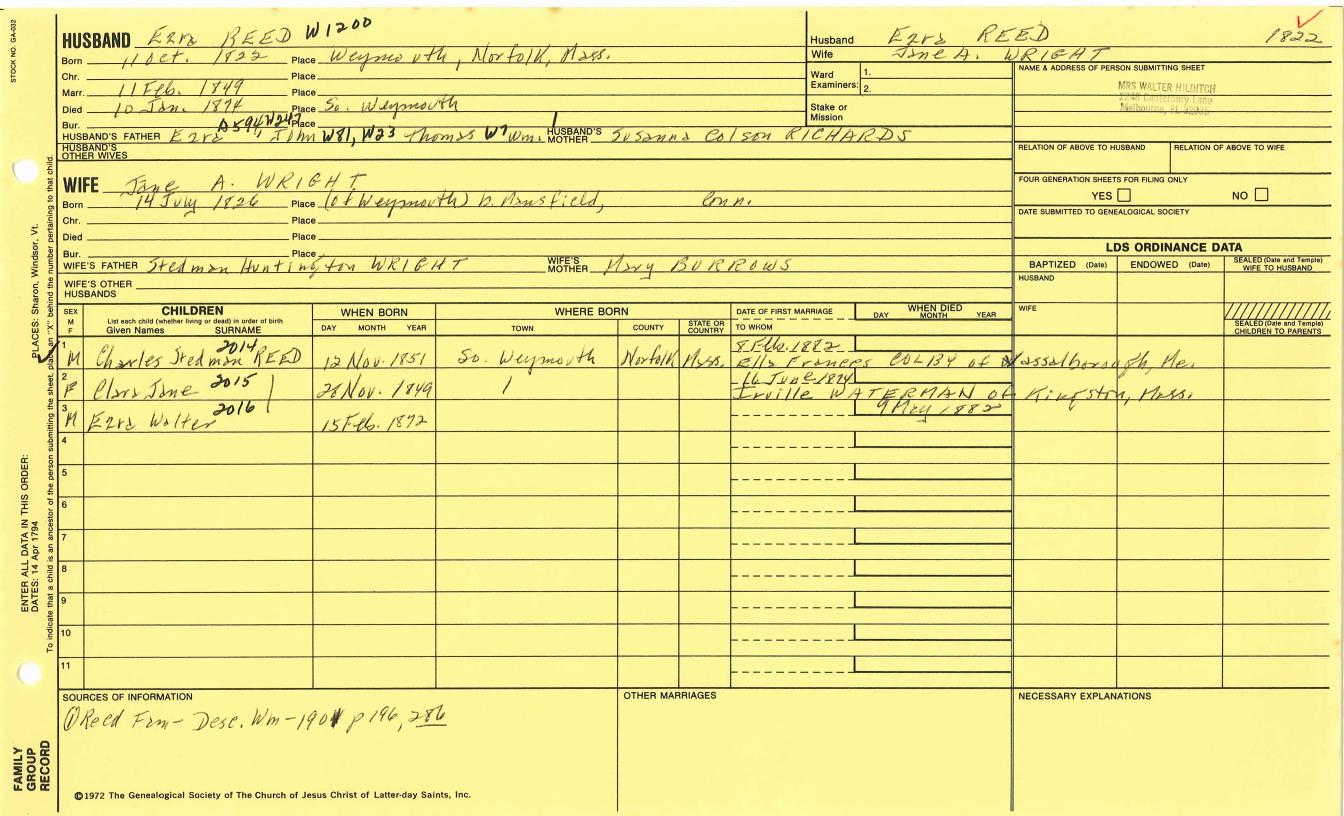 STOCK NO. GA-032
HUSBAND Ezra REED W1200
Born 11 Oct. 1822 Place Weymouth, Norfolk, Mass.
Chr. Place
Marr. 11 Feb. 1849 Place
Died 10 Jan. 1874 Place So. Weymouth
Bur. Place
A594, W247
HUSBAND'S FATHER Ezra, John W81, W23 Thomas W7 Wm. HUSBAND'S MOTHER Susanna Colson RICHARDS
HUSBAND'S OTHER WIVES
Husband Ezra REED 1822
Wife Jane A. WRIGHT
Ward Examiners: 1.
2.
Stake or Mission
NAME & ADDRESS OF PERSON SUBMITTING SHEET
MRS WALTER HILDITCH
Canterbury Lane
Melbourne, FL
RELATION OF ABOVE TO HUSBAND RELATION OF ABOVE TO WIFE
FOUR GENERATION SHEETS FOR FILING ONLY
YES NO
DATE SUBMITTED TO GENEALOGICAL SOCIETY
WIFE Jane A. WRIGHT
Born 14 July 1826 Place (of Weymouth) b. Mansfield, Conn.
Chr. Place
Died Place
Bur. Place
WIFE'S FATHER Stedman Huntington WRIGHT WIFE'S MOTHER Mary BURROWS
WIFE'S OTHER HUSBANDS
LDS ORDINANCE DATA
BAPTIZED (Date) ENDOWED (Date) SEALED (Date and Temple) WIFE TO HUSBAND
HUSBAND
WIFE
SEALED (Date and Temple) CHILDREN TO PARENTS
SEX M F CHILDREN List each child (whether living or dead) in order of birth Given Names SURNAME WHEN BORN DAY MONTH YEAR WHERE BORN TOWN COUNTY STATE OR COUNTRY DATE OF FIRST MARRIAGE TO WHOM WHEN DIED DAY MONTH YEAR
2014 8 Feb. 1882
1 M Charles Stedman REED 12 Nov. 1851 So. Weymouth Norfolk Mass. Ella Frances COLBY of Vassalborough, Me.
2015 16 June 1874
2 F Clara Jane 28 Nov. 1849 Irville WATERMAN of Kingston, Mass.
2016 9 May 1882
3 M Ezra Walter 15 Feb. 1872
4
5
6
7
8
9
10
11
SOURCES OF INFORMATION
① Reed Fam- Desc. Wm-1901 p 196, 286
OTHER MARRIAGES
NECESSARY EXPLANATIONS
©1972 The Genealogical Society of The Church of Jesus Christ of Latter-day Saints, Inc.
ENTER ALL DATA IN THIS ORDER:
DATES: 14 Apr 1794 PLACES: Sharon, Windsor, Vt.
To indicate that a child is an ancestor of the person submitting the sheet, place an "X" behind the number pertaining to that child.
FAMILY GROUP RECORD